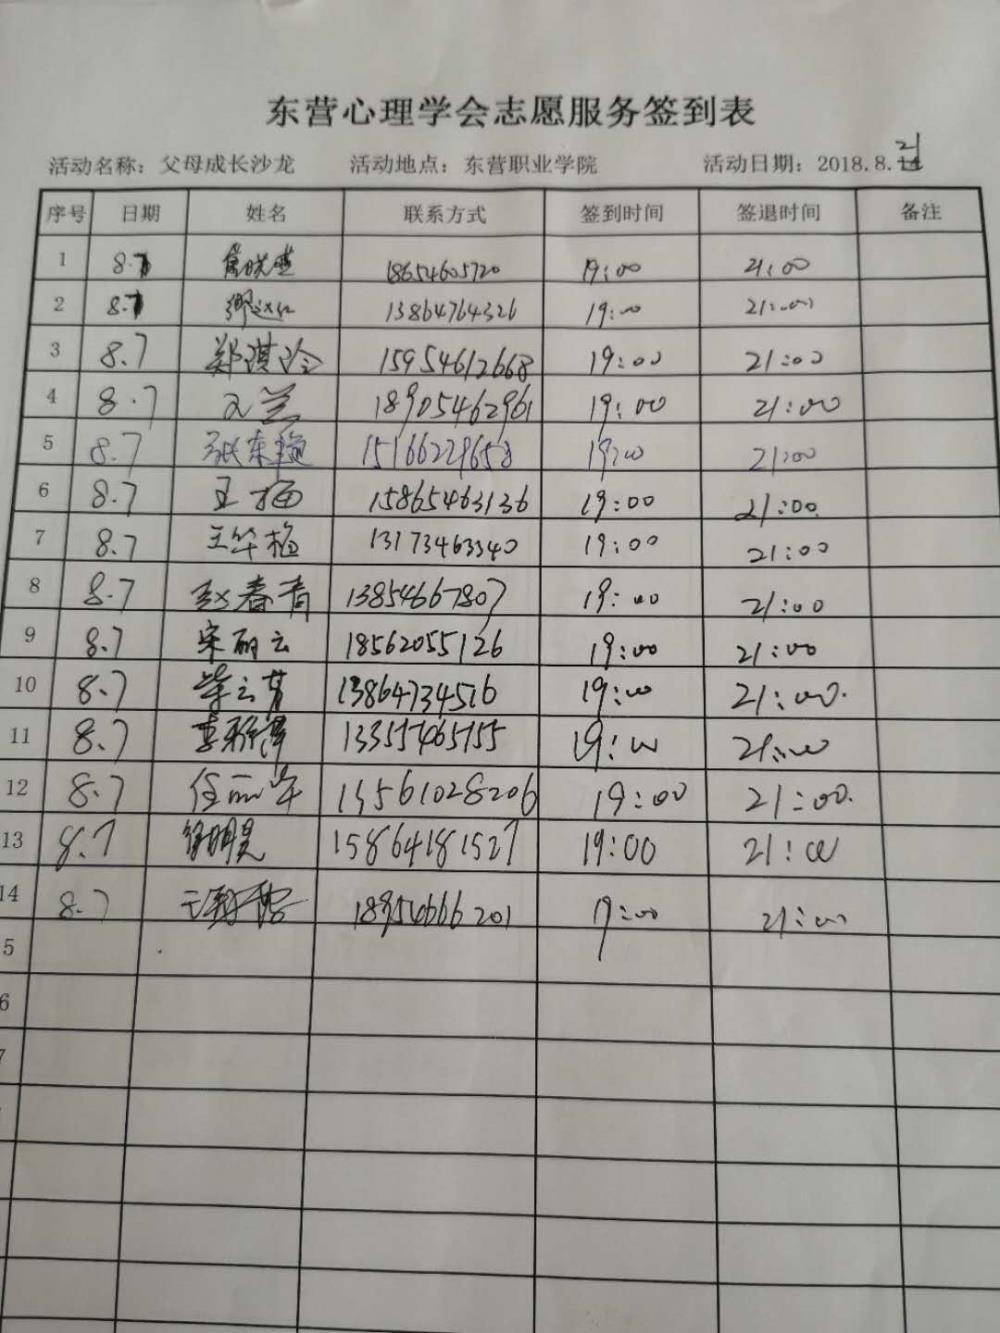 东营心理学会志愿服务签到表
活动名称：父母成长沙龙 活动地点：东营职业学院 活动日期：2018.8.21
序号 日期 姓名 联系方式 签到时间 签退时间 备注
1 8.7 18654605720 19:00 21:00
2 8.7 13864764326 19:00 21:00
3 8.7 郑淇玲 15954612668 19:00 21:00
4 8.7 18905462961 19:00 21:00
5 8.7 张东艳 15166229658 19:00 21:00
6 8.7 王梅 15865463136 19:00 21:00
7 8.7 王华梅 13173463340 19:00 21:00
8 8.7 赵春青 13854667807 19:00 21:00
9 8.7 宋丽云 18562055126 19:00 21:00
10 8.7 柴云芳 13864734516 19:00 21:00.
11 8.7 19:00 21:00
12 8.7 任丽华 13561028206 19:00 21:00.
13 8.7 15864181527 19:00 21:00
14 8.7 18954666201 19:00 21:00
5
6
7